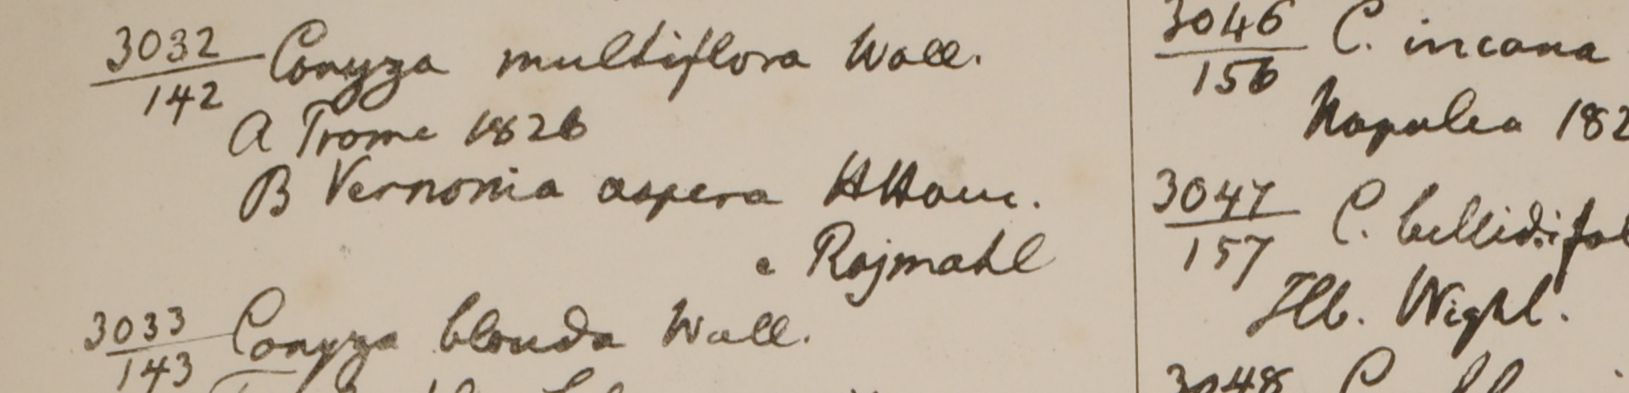 3032 Conyza multiflora Wall.
142
A Trome 1826
B Vernonia aspera HHam.
e Rajmahl
3033 Conyza blanda Wall.
143
3046 C. incana
156
Napalea 182
3047 C. bellidifol
157
Hb. Wight.
3048 C.